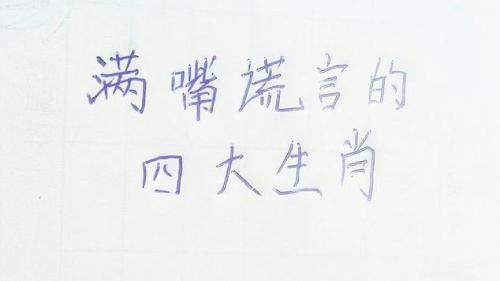 满嘴谎言的
四大生肖